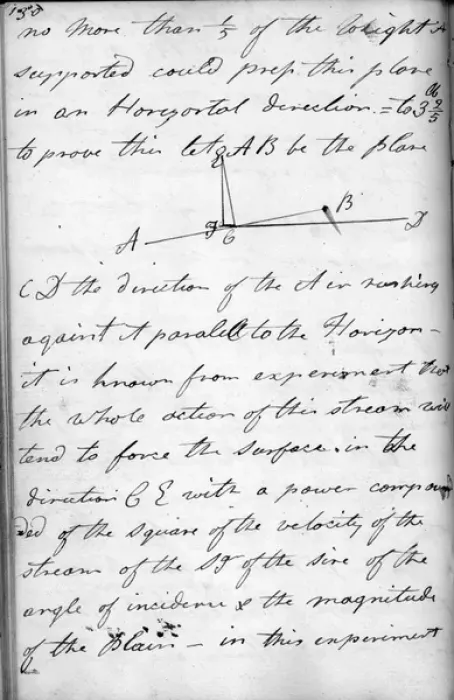 138
no more than 1/5 of the weight it
supported could press this plane
in an Horizontal direction = to 3 2/5 lb
to prove this let AB be the plane
E
B
A F C D
CD the direction of the Air rushing
against it paralell to the Horizon -
it is known from experiment that
the whole action of this stream will
tend to force the surface in the
direction CE with a power compoun
ded of the square of the velocity of the
stream of the sq of the sine of the
angle of incidence & the magnitude
of the Plain - in this experiment